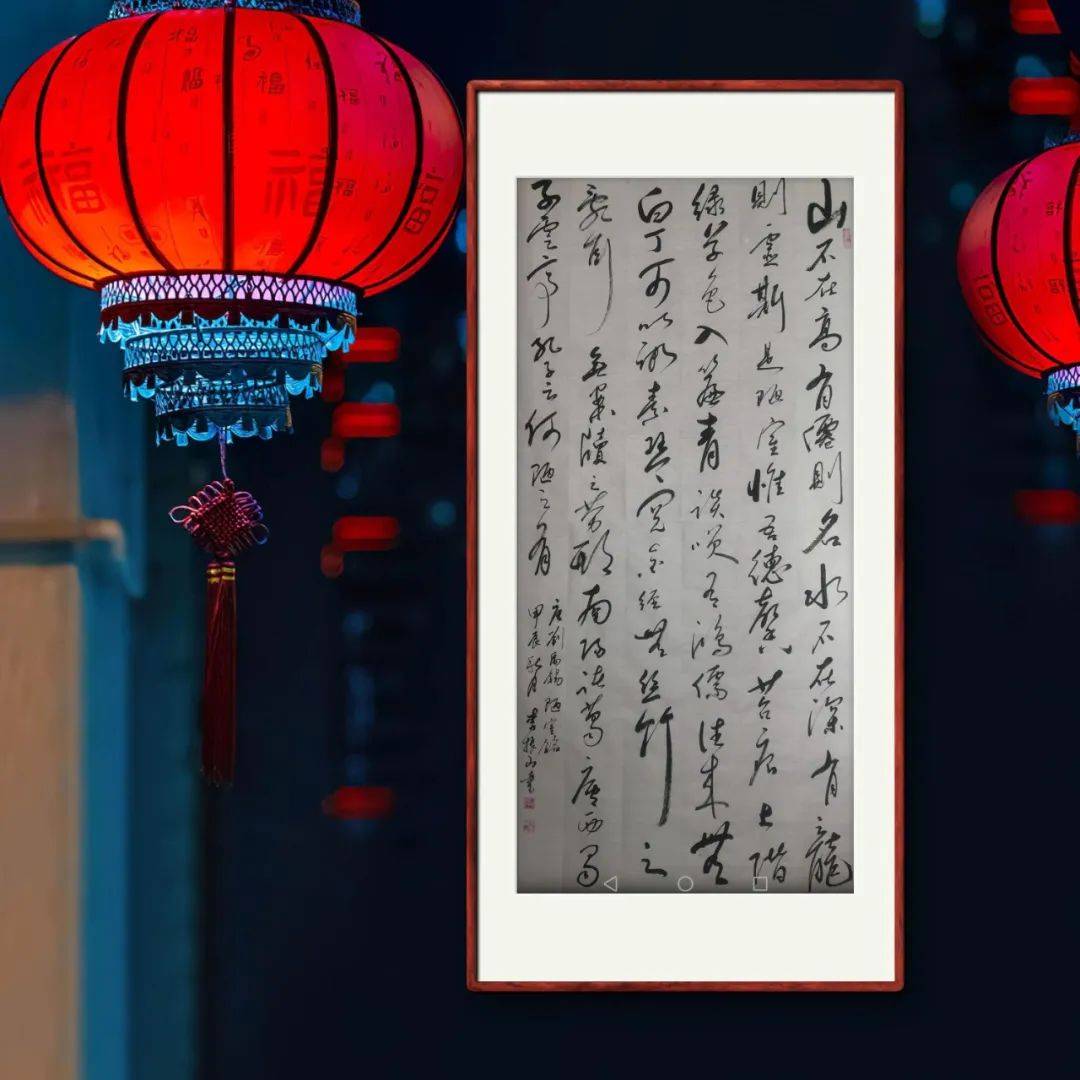 山不在高有僊則名水不在深有龍
則靈斯是陋室惟吾德馨苔痕上階
绿草色入簾青談笑有鴻儒往来無
白丁可以調素琴閲金經無絲竹之
亂耳無案牘之勞形南陽諸葛廬西蜀
子雲亭孔子云何陋之有
唐劉禹錫陋室銘
甲辰秋月李振山書
福
福